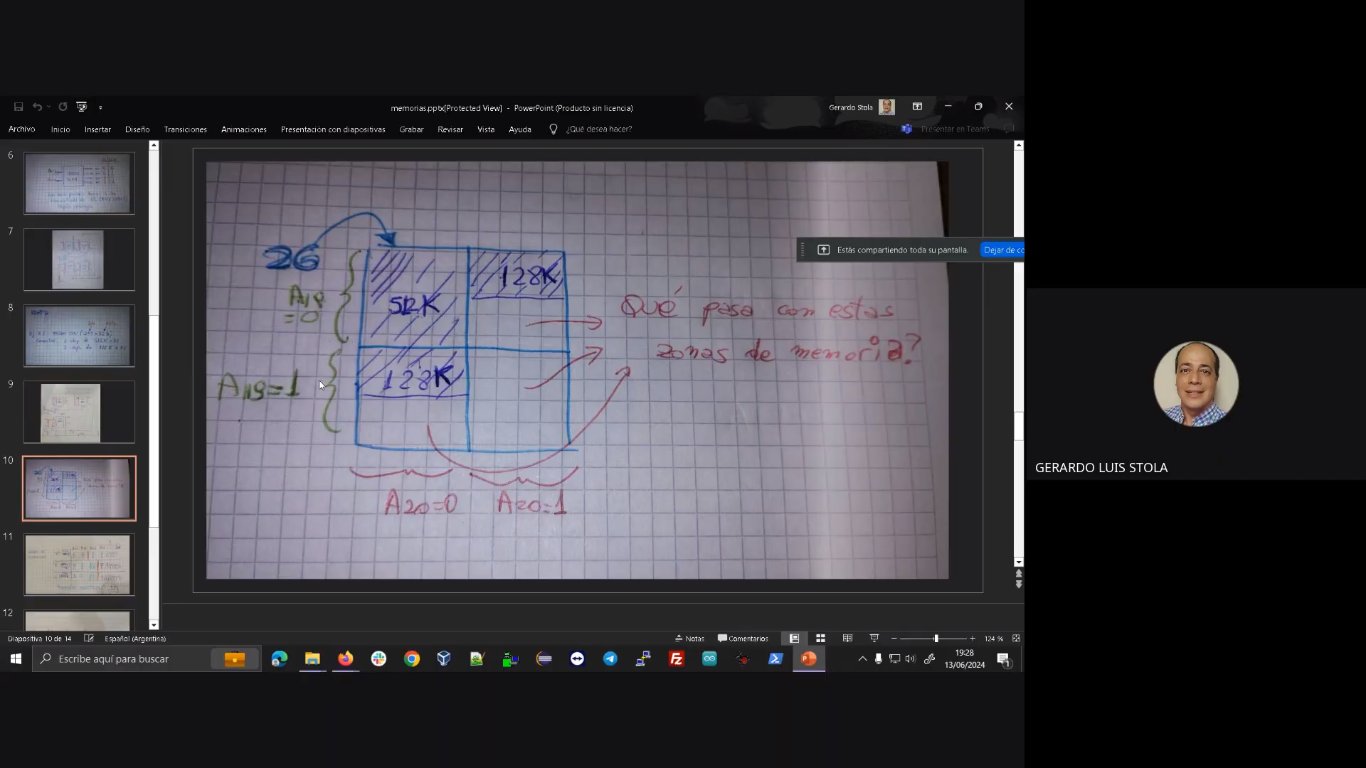 memorias.pptx[Protected View] - PowerPoint (Producto sin licencia)
Gerardo Stola
Archivo Inicio Insertar Diseño Transiciones Animaciones Presentación con diapositivas Grabar Revisar Vista Ayuda ¿Qué desea hacer?
Presentar en Teams
6
7
8
9
10
11
12
Estás compartiendo toda su pantalla.
Dejar de co
26
128K
A19
=0
512K
Qué pasa con estas
zonas de memoria?
A19=1
128K
A20=0 A20=1
GERARDO LUIS STOLA
Diapositiva 10 de 14 Español (Argentina) Notas Comentarios 124 %
Escribe aquí para buscar
19:28
13/06/2024